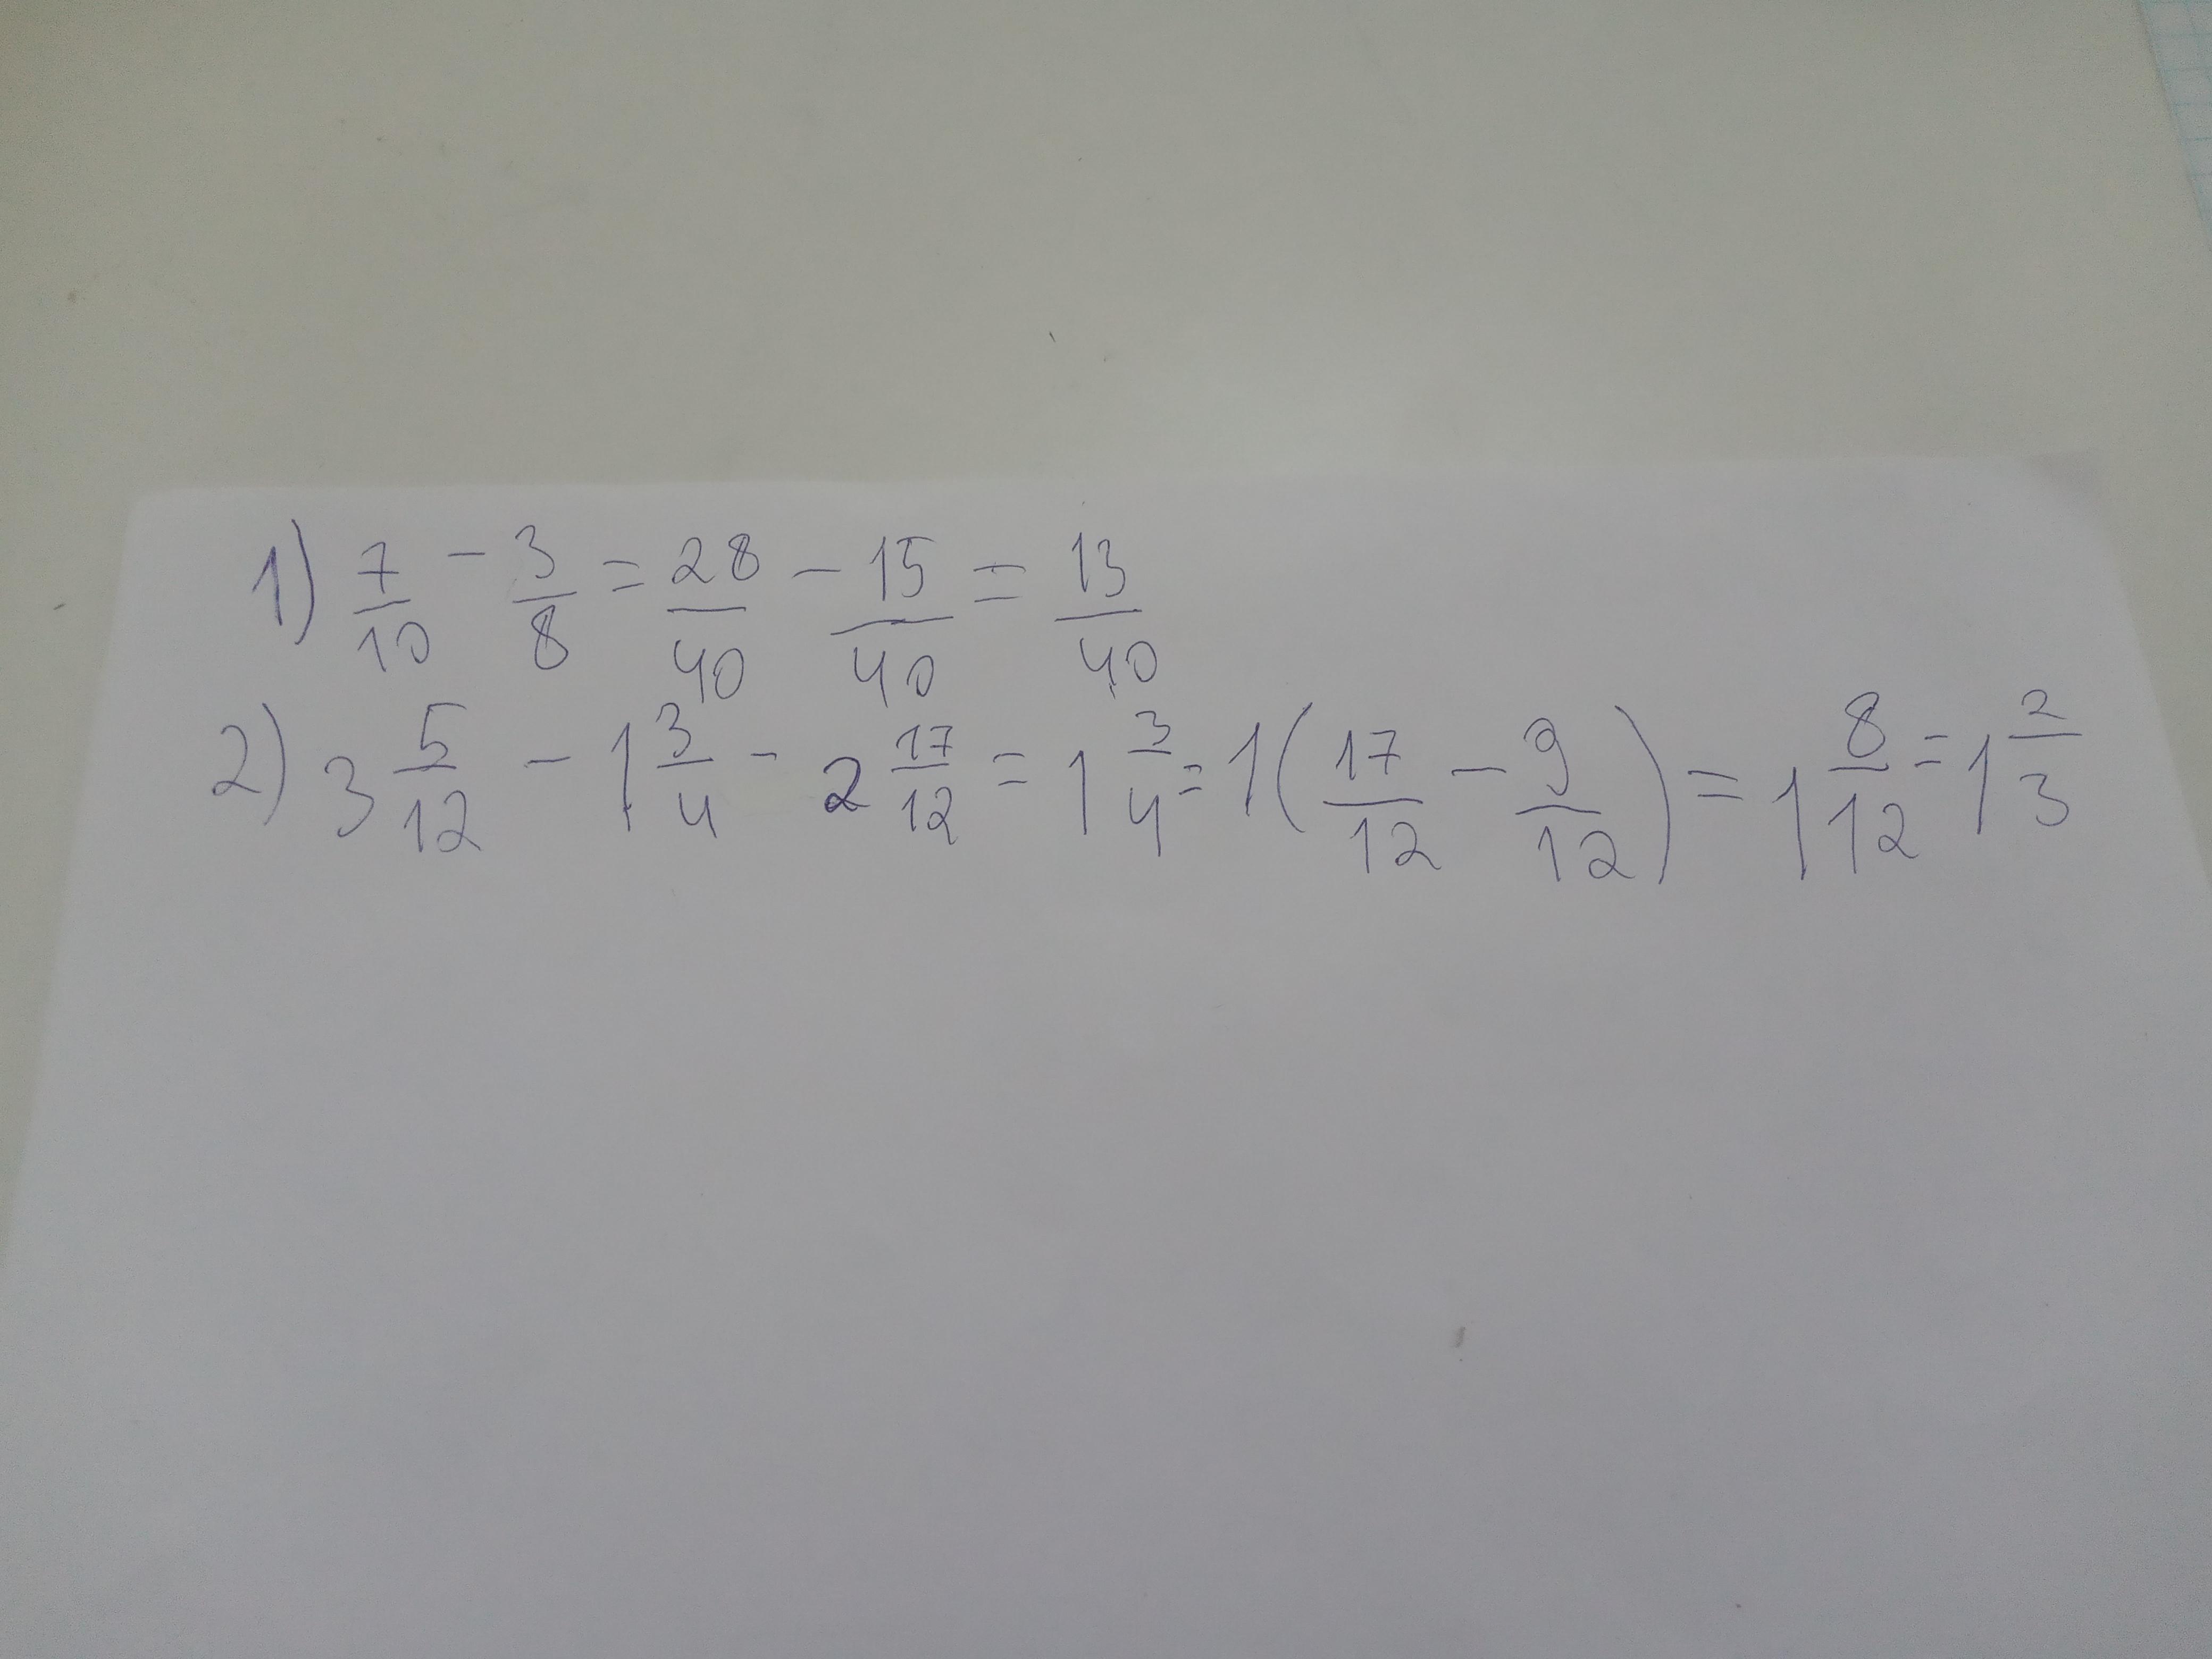 1) 7/10 - 3/8 = 28/40 - 15/40 = 13/40
2) 3 5/12 - 1 3/4 - 2 17/12 = 1 3/4 = 1(17/12 - 9/12) = 1 8/12 = 1 2/3